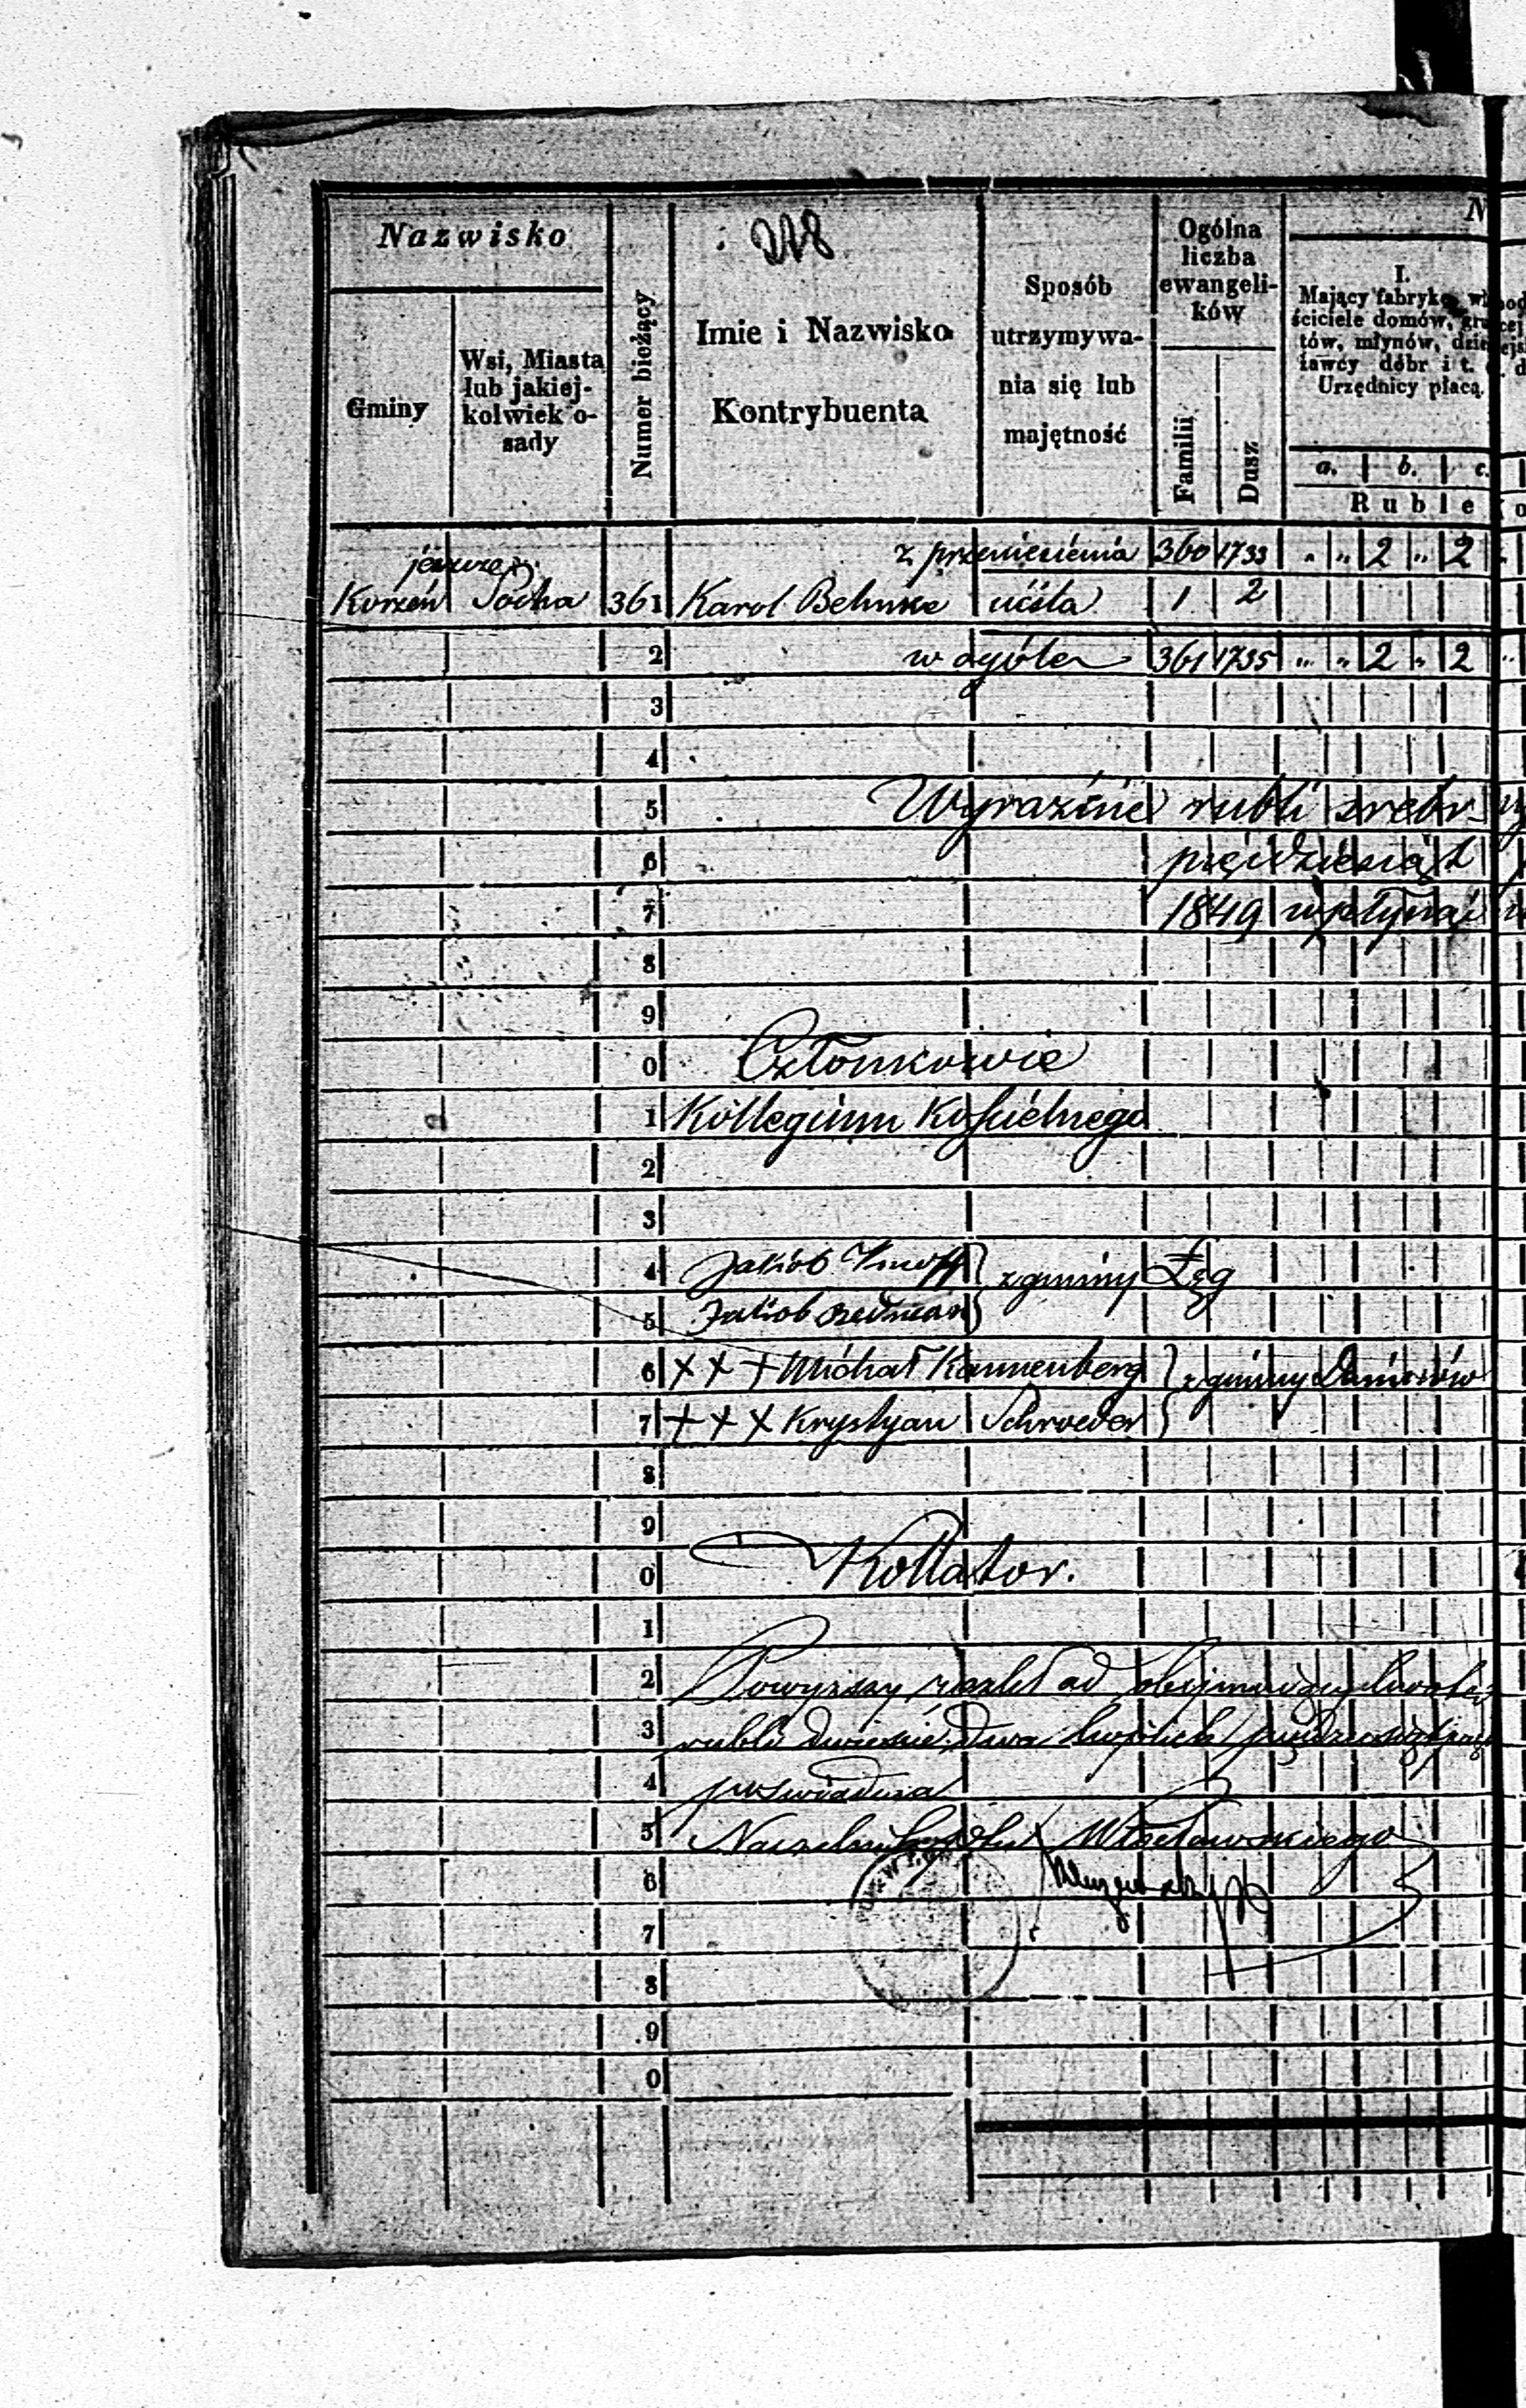 Nazwisko
Gminy
Wsi, Miasta
lub jakiej-
kolwiek o-
sady
Numer bieżący
Imie i Nazwisko
Kontrybuenta
Sposób
utrzymywa-
nia się lub
majętność
Ogólna
liczba
ewangeli-
ków
Familii
Dusz
I.
Mający fabrykę, wł
ściciele domów, gru
tów, młynów, dzie
ławcy dóbr i t.
Urzędnicy płacą.
a. b. c.
Ruble
jeszcze z przeniesienia 360 1733 " " 2 " 2
Korzeń Socha 361 Karol Behnke 1 2
2 w ogóle 361 1735 " " 2 " 2
3
4
5 Wyraźnie rubli srebr-
6 pięćdziesiąt
7 1849 wpłynąć
8
9
0 Członkowie
1 Kollegium Kościelnego
2
3
4 Jakób z gminy Łęg
5 Jakob
6 XX+ Michał Kannenberg z gminy
7 ++X Krystyan Schroeder
8
9
0 Kollator.
1
2 Powyższy rozkład obejmujący
3 rubli dwieście dwa kopiiek
4 poświadcza
5 Naczelnik
6
7
8
9
0